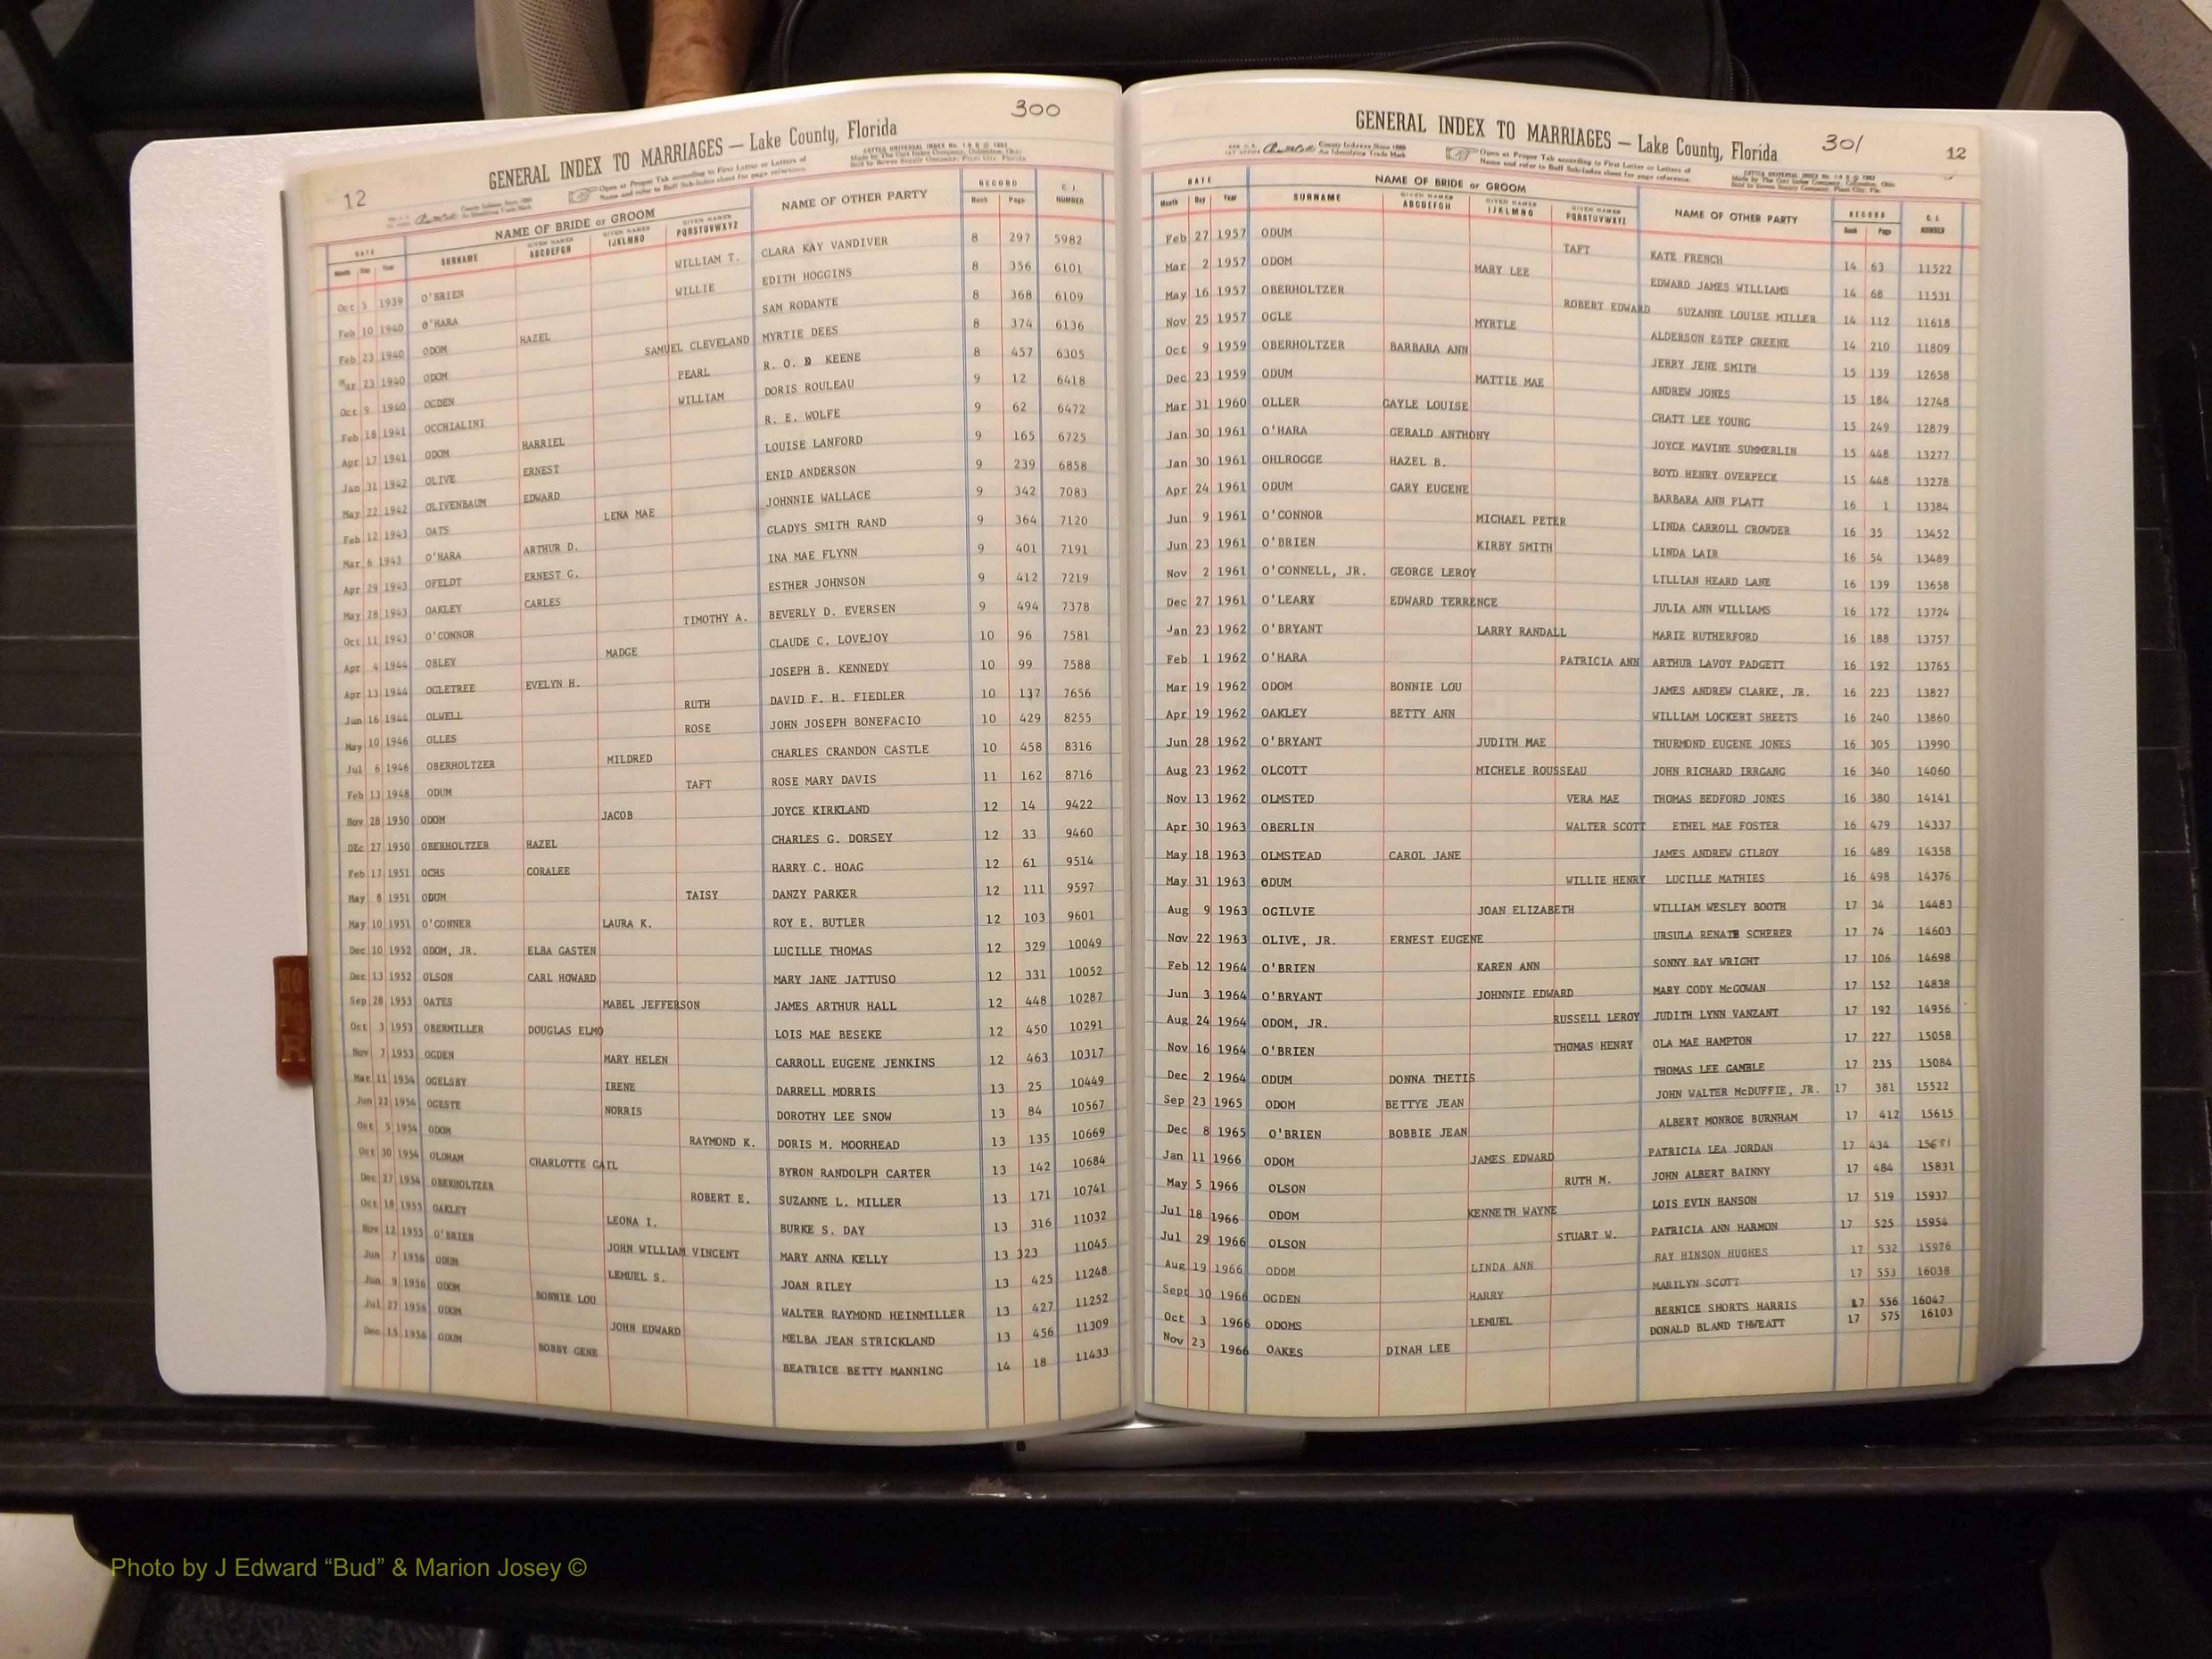 12 300
GENERAL INDEX TO MARRIAGES — Lake County, Florida
County Indexes Since 1888
An Identifying Trade Mark
Open at Proper Tab according to First Letter or Letters of
Name and refer to Buff Sub-Index sheet for page reference.
Made by The Cott Index Company, Columbus, Ohio
DATE NAME OF BRIDE or GROOM NAME OF OTHER PARTY RECORD C. I. NUMBER
Month Day Year SURNAME GIVEN NAMES ABCDEFGH GIVEN NAMES IJKLMNO GIVEN NAMES PQRSTUVWXYZ Book Page
Oct 5 1939 O'BRIEN WILLIAM T. CLARA KAY VANDIVER 8 297 5982
Feb 10 1940 O'HARA WILLIE EDITH HOGGINS 8 356 6101
Feb 23 1940 ODOM HAZEL SAM RODANTE 8 368 6109
Mar 23 1940 ODOM SAMUEL CLEVELAND MYRTIE DEES 8 374 6136
Oct 9 1940 OGDEN PEARL R. O. D KEENE 8 457 6305
Feb 18 1941 OCCHIALINI WILLIAM DORIS ROULEAU 9 12 6418
Apr 17 1941 ODOM HARRIEL R. E. WOLFE 9 62 6472
Jan 31 1942 OLIVE ERNEST LOUISE LANFORD 9 165 6725
May 22 1942 OLIVENBAUM EDWARD ENID ANDERSON 9 239 6858
Feb 12 1943 OATS LENA MAE JOHNNIE WALLACE 9 342 7083
Mar 6 1943 O'HARA ARTHUR D. GLADYS SMITH RAND 9 364 7120
Apr 29 1943 OFELDT ERNEST G. INA MAE FLYNN 9 401 7191
May 28 1943 OAKLEY CARLES ESTHER JOHNSON 9 412 7219
Oct 11 1943 O'CONNOR TIMOTHY A. BEVERLY D. EVERSEN 9 494 7378
Apr 4 1944 OBLEY MADGE CLAUDE C. LOVEJOY 10 96 7581
Apr 13 1944 OGLETREE EVELYN H. JOSEPH B. KENNEDY 10 99 7588
Jun 16 1944 OLWELL RUTH DAVID F. H. FIEDLER 10 137 7656
May 10 1946 OLLES ROSE JOHN JOSEPH BONEFACIO 10 429 8255
Jul 6 1946 OBERHOLTZER MILDRED CHARLES CRANDON CASTLE 10 458 8316
Feb 13 1948 ODUM TAFT ROSE MARY DAVIS 11 162 8716
Nov 28 1950 ODOM JACOB JOYCE KIRKLAND 12 14 9422
DEc 27 1950 OBERHOLTZER HAZEL CHARLES G. DORSEY 12 33 9460
Feb 17 1951 OCHS CORALEE HARRY C. HOAG 12 61 9514
May 8 1951 ODUM TAISY DANZY PARKER 12 111 9597
May 10 1951 O'CONNER LAURA K. ROY E. BUTLER 12 103 9601
Dec 10 1952 ODOM, JR. ELBA GASTEN LUCILLE THOMAS 12 329 10049
Dec 13 1952 OLSON CARL HOWARD MARY JANE JATTUSO 12 331 10052
Sep 28 1953 OATES MABEL JEFFERSON JAMES ARTHUR HALL 12 448 10287
Oct 3 1953 OBERMILLER DOUGLAS ELMO LOIS MAE BESEKE 12 450 10291
Nov 7 1953 OGDEN MARY HELEN CARROLL EUGENE JENKINS 12 463 10317
Mar 11 1954 OGELSBY IRENE DARRELL MORRIS 13 25 10449
Jun 22 1954 OGESTE NORRIS DOROTHY LEE SNOW 13 84 10567
Oct 5 1954 ODOM RAYMOND K. DORIS M. MOORHEAD 13 135 10669
Oct 30 1954 OLDHAM CHARLOTTE GAIL BYRON RANDOLPH CARTER 13 142 10684
Dec 27 1954 OBERHOLTZER ROBERT E. SUZANNE L. MILLER 13 171 10741
Oct 18 1955 OAKLEY LEONA I. BURKE S. DAY 13 316 11032
Nov 12 1955 O'BRIEN JOHN WILLIAM VINCENT MARY ANNA KELLY 13 323 11045
Jun 7 1956 ODOM LEMUEL S. JOAN RILEY 13 425 11248
Jun 9 1956 ODOM BONNIE LOU WALTER RAYMOND HEINMILLER 13 427 11252
Jul 27 1956 ODOM JOHN EDWARD MELBA JEAN STRICKLAND 13 456 11309
Dec 15 1956 ODUM BOBBY GENE BEATRICE BETTY MANNING 14 18 11433
GENERAL INDEX TO MARRIAGES — Lake County, Florida 301 12
County Indexes Since 1888
An Identifying Trade Mark
Open at Proper Tab according to First Letter or Letters of
Name and refer to Buff Sub-Index sheet for page reference.
Made by The Cott Index Company, Columbus, Ohio
DATE NAME OF BRIDE or GROOM NAME OF OTHER PARTY RECORD C. I. NUMBER
Month Day Year SURNAME GIVEN NAMES ABCDEFGH GIVEN NAMES IJKLMNO GIVEN NAMES PQRSTUVWXYZ Book Page
Feb 27 1957 ODUM TAFT KATE FRENCH 14 63 11522
Mar 2 1957 ODOM MARY LEE EDWARD JAMES WILLIAMS 14 68 11531
May 16 1957 OBERHOLTZER ROBERT EDWARD SUZANNE LOUISE MILLER 14 112 11618
Nov 25 1957 OGLE MYRTLE ALDERSON ESTEP GREENE 14 210 11809
Oct 9 1959 OBERHOLTZER BARBARA ANN JERRY JENE SMITH 15 139 12658
Dec 23 1959 ODUM MATTIE MAE ANDREW JONES 15 184 12748
Mar 31 1960 OLLER GAYLE LOUISE CHATT LEE YOUNG 15 249 12879
Jan 30 1961 O'HARA GERALD ANTHONY JOYCE MAVINE SUMMERLIN 15 448 13277
Jan 30 1961 OHLROGGE HAZEL B. BOYD HENRY OVERPECK 15 448 13278
Apr 24 1961 ODUM GARY EUGENE BARBARA ANN PLATT 16 1 13384
Jun 9 1961 O'CONNOR MICHAEL PETER LINDA CARROLL CROWDER 16 35 13452
Jun 23 1961 O'BRIEN KIRBY SMITH LINDA LAIR 16 54 13489
Nov 2 1961 O'CONNELL, JR. GEORGE LEROY LILLIAN HEARD LANE 16 139 13658
Dec 27 1961 O'LEARY EDWARD TERRENCE JULIA ANN WILLIAMS 16 172 13724
Jan 23 1962 O'BRYANT LARRY RANDALL MARIE RUTHERFORD 16 188 13757
Feb 1 1962 O'HARA PATRICIA ANN ARTHUR LAVOY PADGETT 16 192 13765
Mar 19 1962 ODOM BONNIE LOU JAMES ANDREW CLARKE, JR. 16 223 13827
Apr 19 1962 OAKLEY BETTY ANN WILLIAM LOCKERT SHEETS 16 240 13860
Jun 28 1962 O'BRYANT JUDITH MAE THURMOND EUGENE JONES 16 305 13990
Aug 23 1962 OLCOTT MICHELE ROUSSEAU JOHN RICHARD IRRGANG 16 340 14060
Nov 13 1962 OLMSTED VERA MAE THOMAS BEDFORD JONES 16 380 14141
Apr 30 1963 OBERLIN WALTER SCOTT ETHEL MAE FOSTER 16 479 14337
May 18 1963 OLMSTEAD CAROL JANE JAMES ANDREW GILROY 16 489 14358
May 31 1963 ODUM WILLIE HENRY LUCILLE MATHIES 16 498 14376
Aug 9 1963 OGILVIE JOAN ELIZABETH WILLIAM WESLEY BOOTH 17 34 14483
Nov 22 1963 OLIVE, JR. ERNEST EUGENE URSULA RENATE SCHERER 17 74 14603
Feb 12 1964 O'BRIEN KAREN ANN SONNY RAY WRIGHT 17 106 14698
Jun 3 1964 O'BRYANT JOHNNIE EDWARD MARY CODY McGOWAN 17 152 14838
Aug 24 1964 ODOM, JR. RUSSELL LEROY JUDITH LYNN VANZANT 17 192 14956
Nov 16 1964 O'BRIEN THOMAS HENRY OLA MAE HAMPTON 17 227 15058
Dec 2 1964 ODUM DONNA THETIS THOMAS LEE GAMBLE 17 235 15084
Sep 23 1965 ODOM BETTYE JEAN JOHN WALTER McDUFFIE, JR. 17 381 15522
Dec 8 1965 O'BRIEN BOBBIE JEAN ALBERT MONROE BURNHAM 17 412 15615
Jan 11 1966 ODOM JAMES EDWARD PATRICIA LEA JORDAN 17 434
May 5 1966 OLSON RUTH M. JOHN ALBERT BAINNY 17 484 15831
Jul 18 1966 ODOM KENNETH WAYNE LOIS EVIN HANSON 17 519 15937
Jul 29 1966 OLSON STUART W. PATRICIA ANN HARMON 17 525 15954
Aug 19 1966 ODOM LINDA ANN RAY HINSON HUGHES 17 532 15976
Sept 30 1966 OGDEN HARRY MARILYN SCOTT 17 553 16038
Oct 3 1966 ODOMS LEMUEL BERNICE SHORTS HARRIS 17 556 16047
Nov 23 1966 OAKES DINAH LEE DONALD BLAND THWEATT 17 575 16103
Photo by J Edward “Bud” & Marion Josey ©